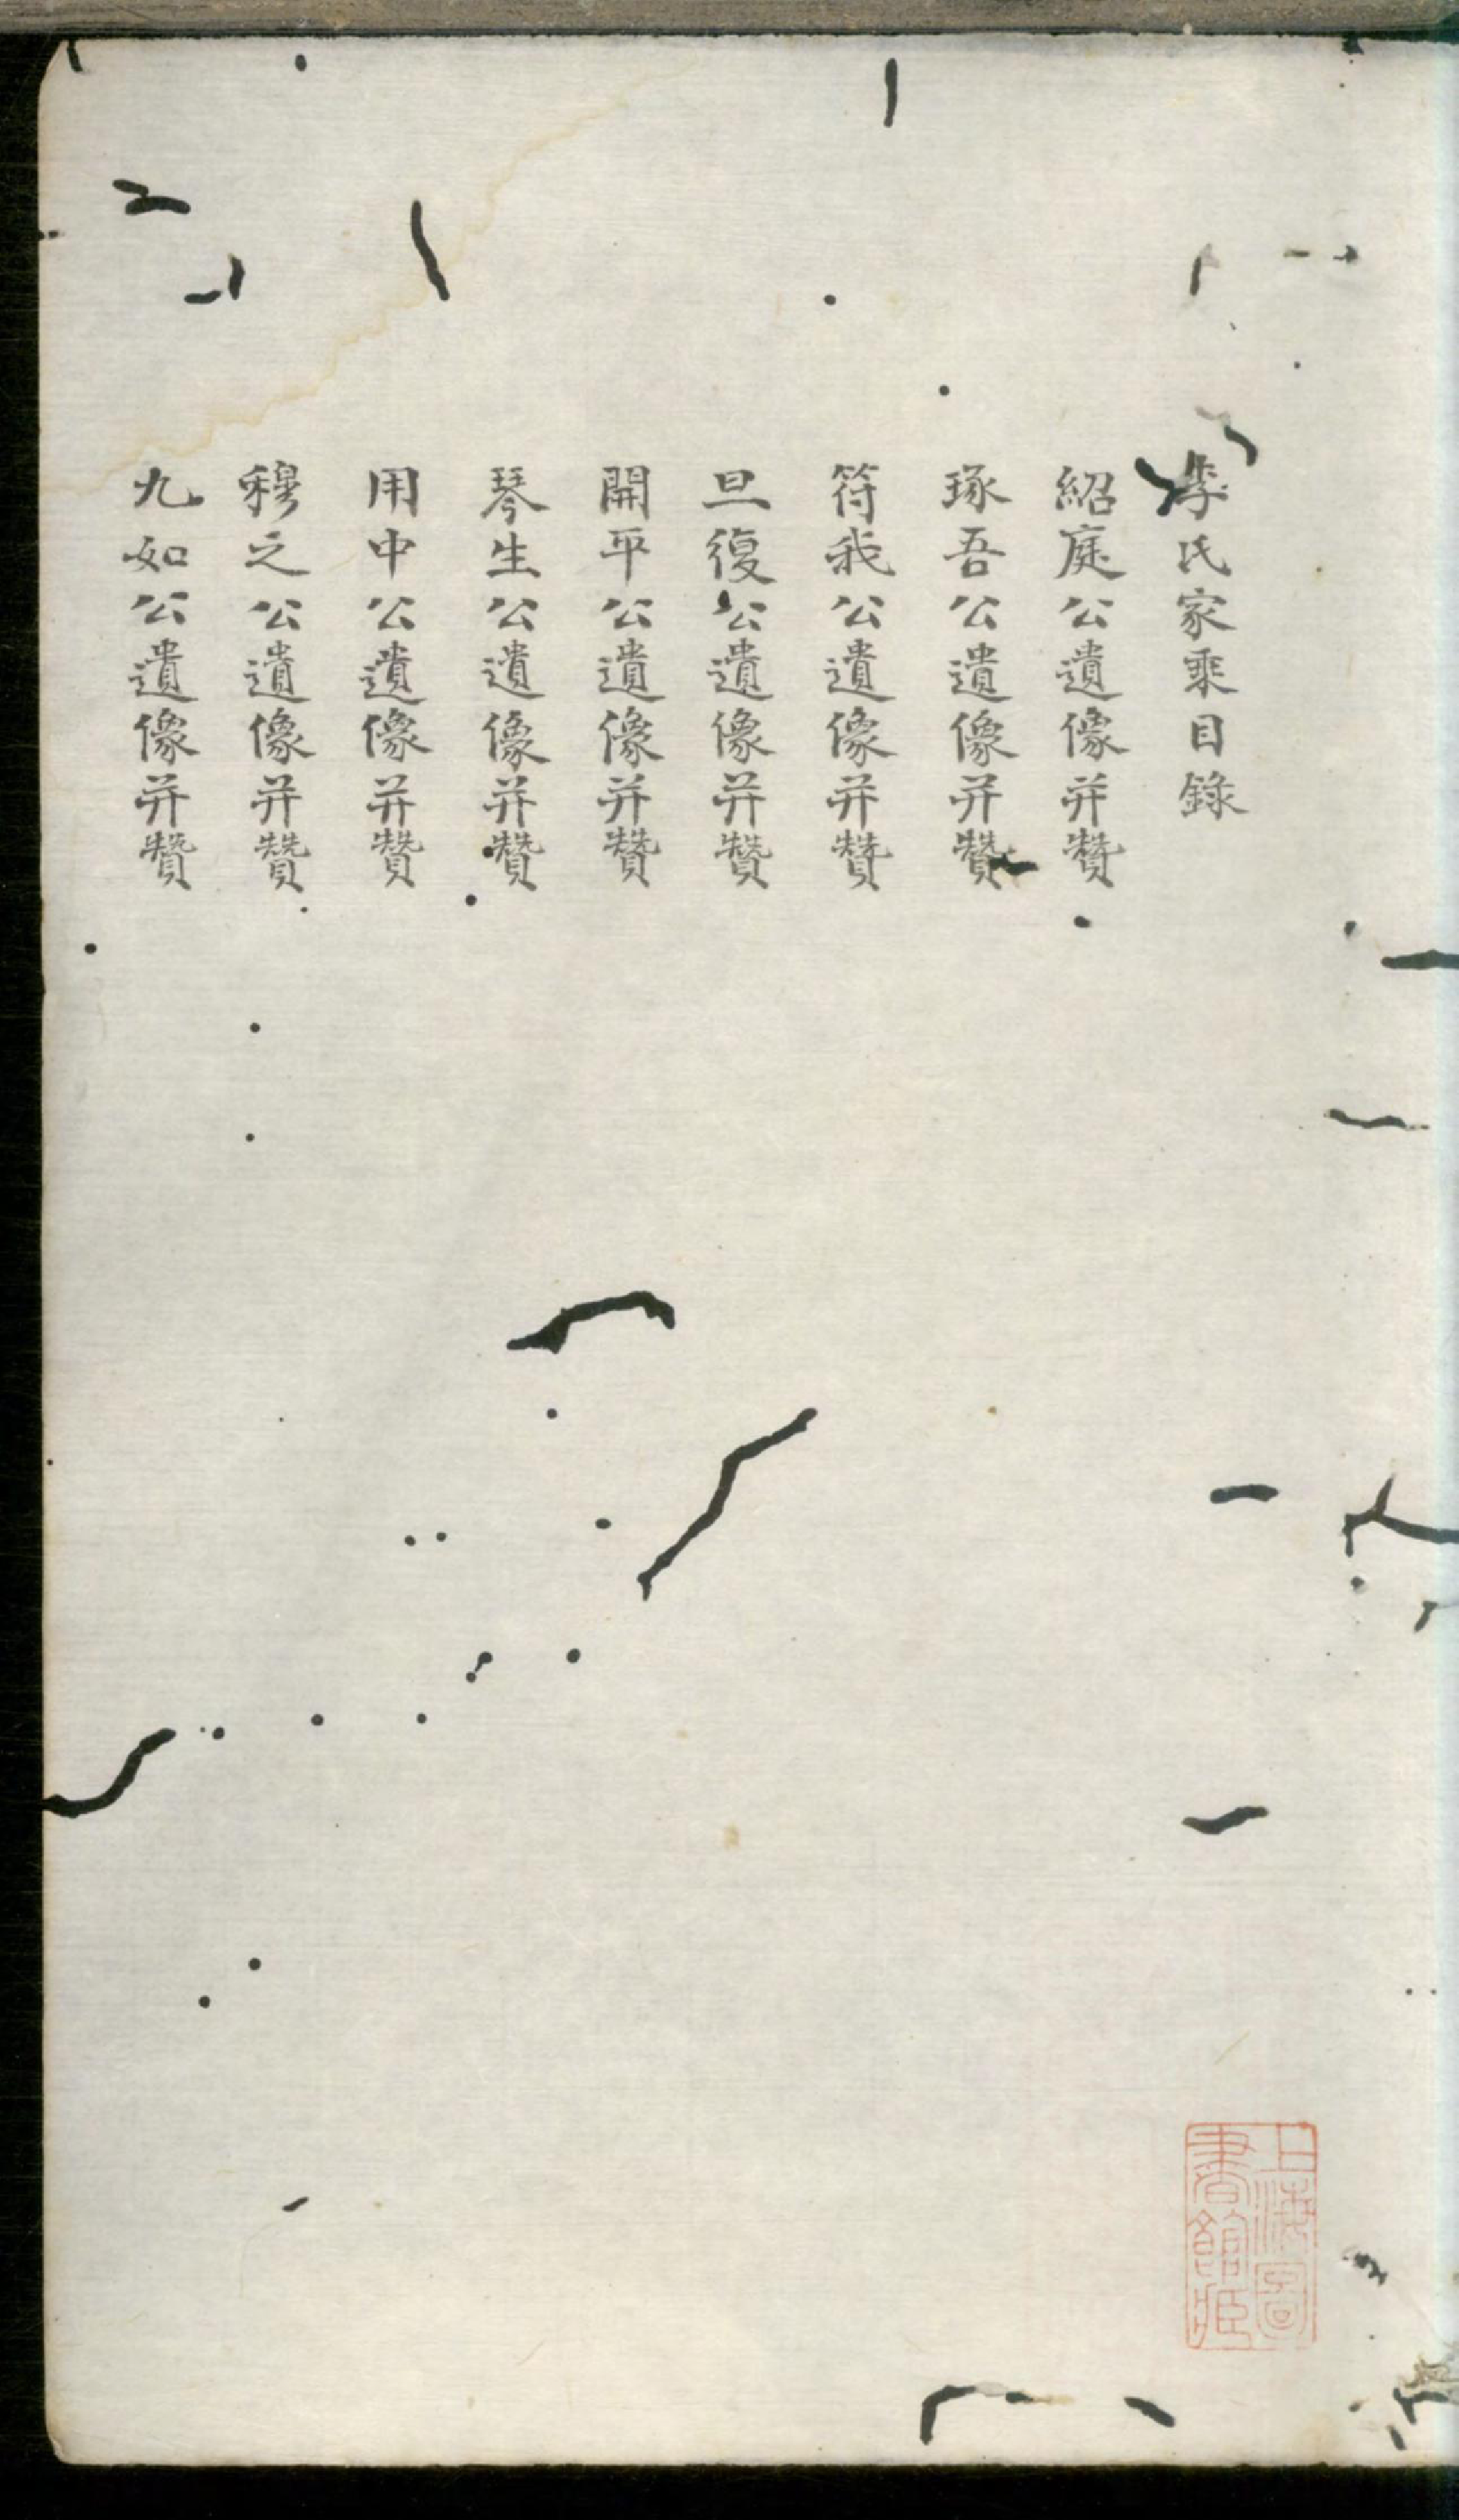 李氏家乘目錄
紹庭公遺像并贊
琢吾公遺像并贊
符我公遺像并贊
旦復公遺像并贊
開平公遺像并贊
琴生公遺像并贊
用中公遺像并贊
穆之公遺像并贊
九如公遺像并贊
上海圖
書館藏